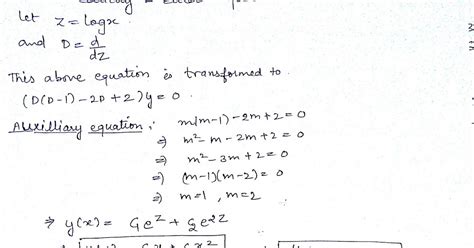 Let z = log x.
and D = d/dz
This above equation is transformed to.
(D(D-1) - 2D + 2) y = 0.
Auxilliary equation; m(m-1) - 2m + 2 = 0
⇒ m² - m - 2m + 2 = 0
⇒ m² - 3m + 2 = 0
⇒ (m-1)(m-2) = 0
⇒ m = 1, m = 2
⇒ y(x) = C₁e^z + C₂e^2z